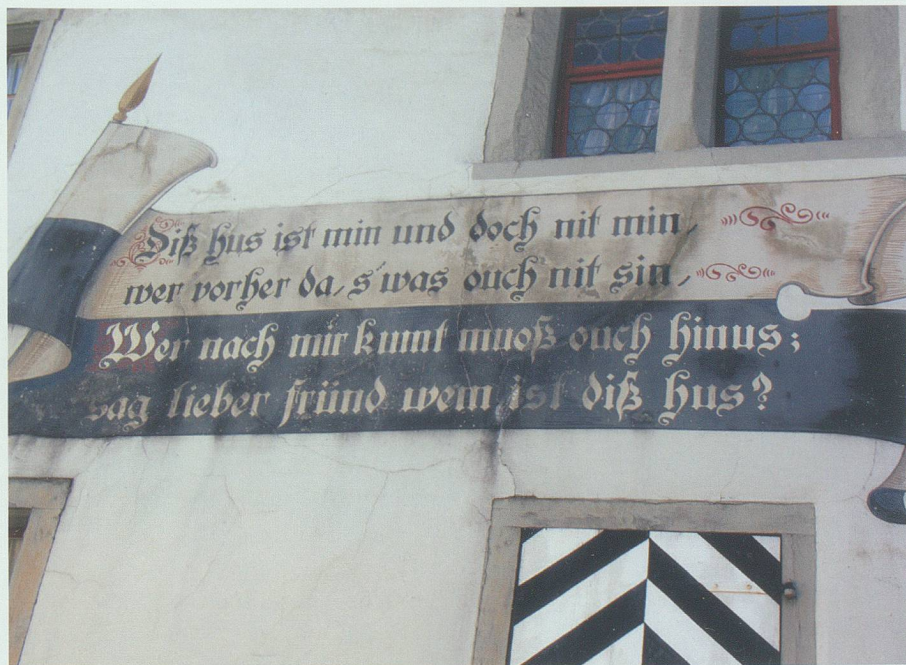 Diß hus ist min und doch nit min,
wer vorher da, s'was ouch nit sin,
Wer nach mir kunnt muoß ouch hinus;
sag lieber fründ wem ist diß hus?